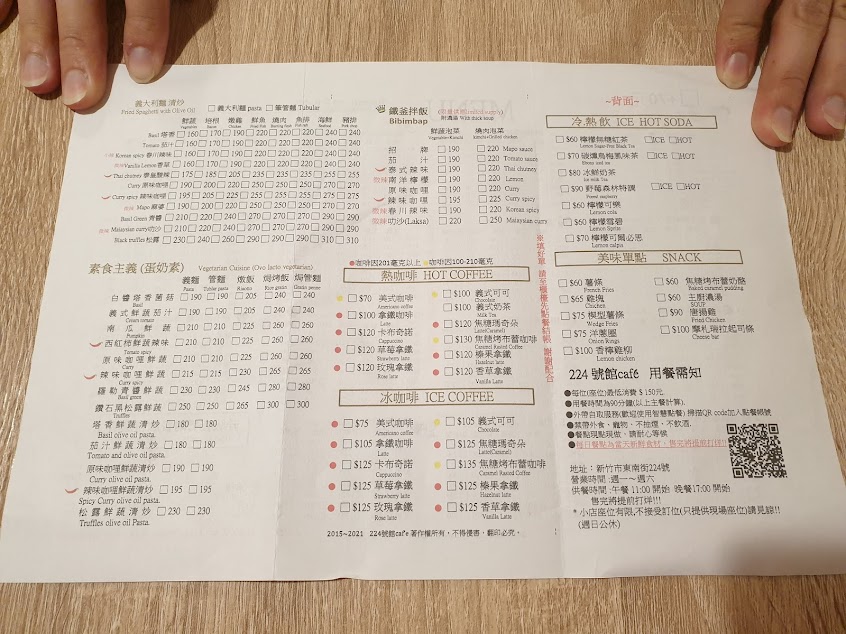 義大利麵 清炒 □ 義大利麵 pasta □ 筆管麵 Tubular
Fried Spaghetti with Olive Oil
鮮蔬 培根 燉雞 鮮魚 燒肉 魚排 海鮮 豬排
Basil 塔香 □160 □170 □190 □220 □220 □220 □240 □240
Tomato 茄汁 □160 □170 □190 □220 □220 □220 □240 □240
Korean spicy 春川辣味 □160 □170 □190 □220 □220 □220 □240 □240
Vanilla Lemon香草 □160 □170 □190 □220 □220 □220 □240 □240
Thai chutney 泰皇酸辣 □175 □185 □205 □235 □235 □235 □255 □255
Curry 原味咖哩 □190 □200 □220 □250 □250 □250 □270 □270
Curry spicy 辣味咖哩 □195 □205 □225 □255 □255 □255 □275 □275
Mapo 麻婆 □190 □200 □220 □250 □250 □250 □270 □270
Basil Green 青醬 □210 □220 □240 □270 □270 □270 □290 □290
Malaysian curry叻沙 □210 □220 □240 □270 □270 □270 □290 □290
Black truffles 松露 □230 □240 □260 □290 □290 □290 □310 □310
素食主義 (蛋奶素) Vegetarian Cuisine (Ovo lacto vegetarian)
義麵 管麵 燉飯 焗烤飯 焗管麵
白醬塔香蕈菇 □190 □190 □205 □240 □240
Basil
義式鮮蔬茄汁 □190 □190 □205 □240 □240
Cream tomato
南瓜鮮蔬 □210 □210 □225 □260 □260
Pumpkin
西紅柿鮮蔬辣味 □210 □210 □225 □260 □260
Tomato spicy
原味咖哩鮮蔬 □210 □210 □225 □260 □260
Curry
辣味咖哩鮮蔬 □215 □215 □230 □265 □265
Curry spicy
羅勒青醬鮮蔬 □230 □230 □245 □280 □280
Basil green
鑽石黑松露鮮蔬 □250 □250 □265 □300 □300
Truffles
塔香鮮蔬清炒 □180 □180
Basil olive oil pasta.
茄汁鮮蔬清炒 □180 □180
Tomato and olive oil pasta.
原味咖哩鮮蔬清炒 □190 □190
Curry olive oil pasta.
辣味咖哩鮮蔬清炒 □195 □195
Spicy Curry olive oil pasta.
松露鮮蔬清炒 □230 □230
Truffles olive oil pasta.
鐵釜拌飯
附濃湯 With thick soup
Bibimbap
鮮蔬泡菜 燒肉泡菜
招牌 □190 □220 Mapo sauce
茄汁 □190 □220 Tomato sauce
泰式辣味 □190 □220 Thai chutney
南洋檸檬 □190 □220 Lemon
原味咖哩 □190 □220 Curry
辣味咖哩 □195 □225 Curry spicy
春川辣味 □190 □220 Korean spicy
叻沙(Laksa) □220 □250 Malaysian curry
●咖啡因201毫克以上 ●咖啡因100-210毫克
熱咖啡 HOT COFFEE
□ $70 美式咖啡
Americano coffee
□ $100 拿鐵咖啡
Latte
□ $120 卡布奇諾
Cappuccino
□ $120 草莓拿鐵
Strawberry latte
□ $120 玫瑰拿鐵
Rose latte
□ $100 義式可可
Chocolate
□ $100 義式奶茶
Milk Tea
□ $120 焦糖瑪奇朵
Latte(Caramel)
□ $130 焦糖烤布蕾咖啡
Caramel Rusted Coffee
□ $120 榛果拿鐵
Hazelnut latte
□ $120 香草拿鐵
Vanilla Latte
冰咖啡 ICE COFFEE
□ $75 美式咖啡
Americano coffee
□ $105 拿鐵咖啡
Latte
□ $125 卡布奇諾
Cappuccino
□ $125 草莓拿鐵
Strawberry latte
□ $125 玫瑰拿鐵
Rose latte
□ $105 義式可可
Chocolate
□ $125 焦糖瑪奇朵
Latte(Caramel)
□ $135 焦糖烤布蕾咖啡
Caramel Rusted Coffee
□ $125 榛果拿鐵
Hazelnut latte
□ $125 香草拿鐵
Vanilla Latte
2015~2021 224號館cafe 著作權所有，不得侵害，翻印必究。
※填好單 請至櫃檯先點餐結帳 謝謝配合
~背面~
冷.熱飲 ICE HOT SODA
□ $60 檸檬無糖紅茶 □ICE □HOT
Lemon Sugar-Free Black Tea
□ $70 碳燻烏梅風味茶 □ICE □HOT
□ $80 冰鮮奶茶
Ice milk Tea
□ $90 野莓森林特調 □ICE □HOT
□ $60 檸檬可樂
Lemon cola
□ $60 檸檬雪碧
Lemon Sprite
□ $70 檸檬可爾必思
Lemon calpis
美味單點 SNACK
□ $60 薯條
French Fries
□ $65 雞塊
Chicken
□ $75 楔型薯條
Wedge Fries
□ $75 洋蔥圈
Onion Rings
□ $100 香檸雞柳
Lemon chicken
□ $60 焦糖烤布蕾奶酪
Baked caramel pudding
□ $60 主廚濃湯
SOUP
□ $90 唐揚雞
Fried Chicken
□ $100 摩札瑞拉起司條
Cheese bar
224 號館 用餐需知
●每位(座位)最低消費 $ 150元.
●用餐時間為90分鐘(以上主餐計算).
●外帶自取服務(歡迎使用智慧點餐). 掃描QR code加入點餐帳號
●禁帶外食、寵物、不抽煙、不飲酒.
●餐點現點現做，請耐心等候
●每日餐點為當天新鮮食材，售完將提前打烊!!
地址：新竹市東南街224號
營業時間：週一～週六
供餐時間：午餐 11:00 開始 晚餐17:00 開始
售完將提前打烊!!!
* 小店座位有限,不接受訂位(只提供現場座位)請見諒!!
(週日公休)